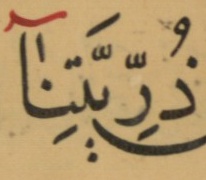 ذُرِّيَّتِنَآ